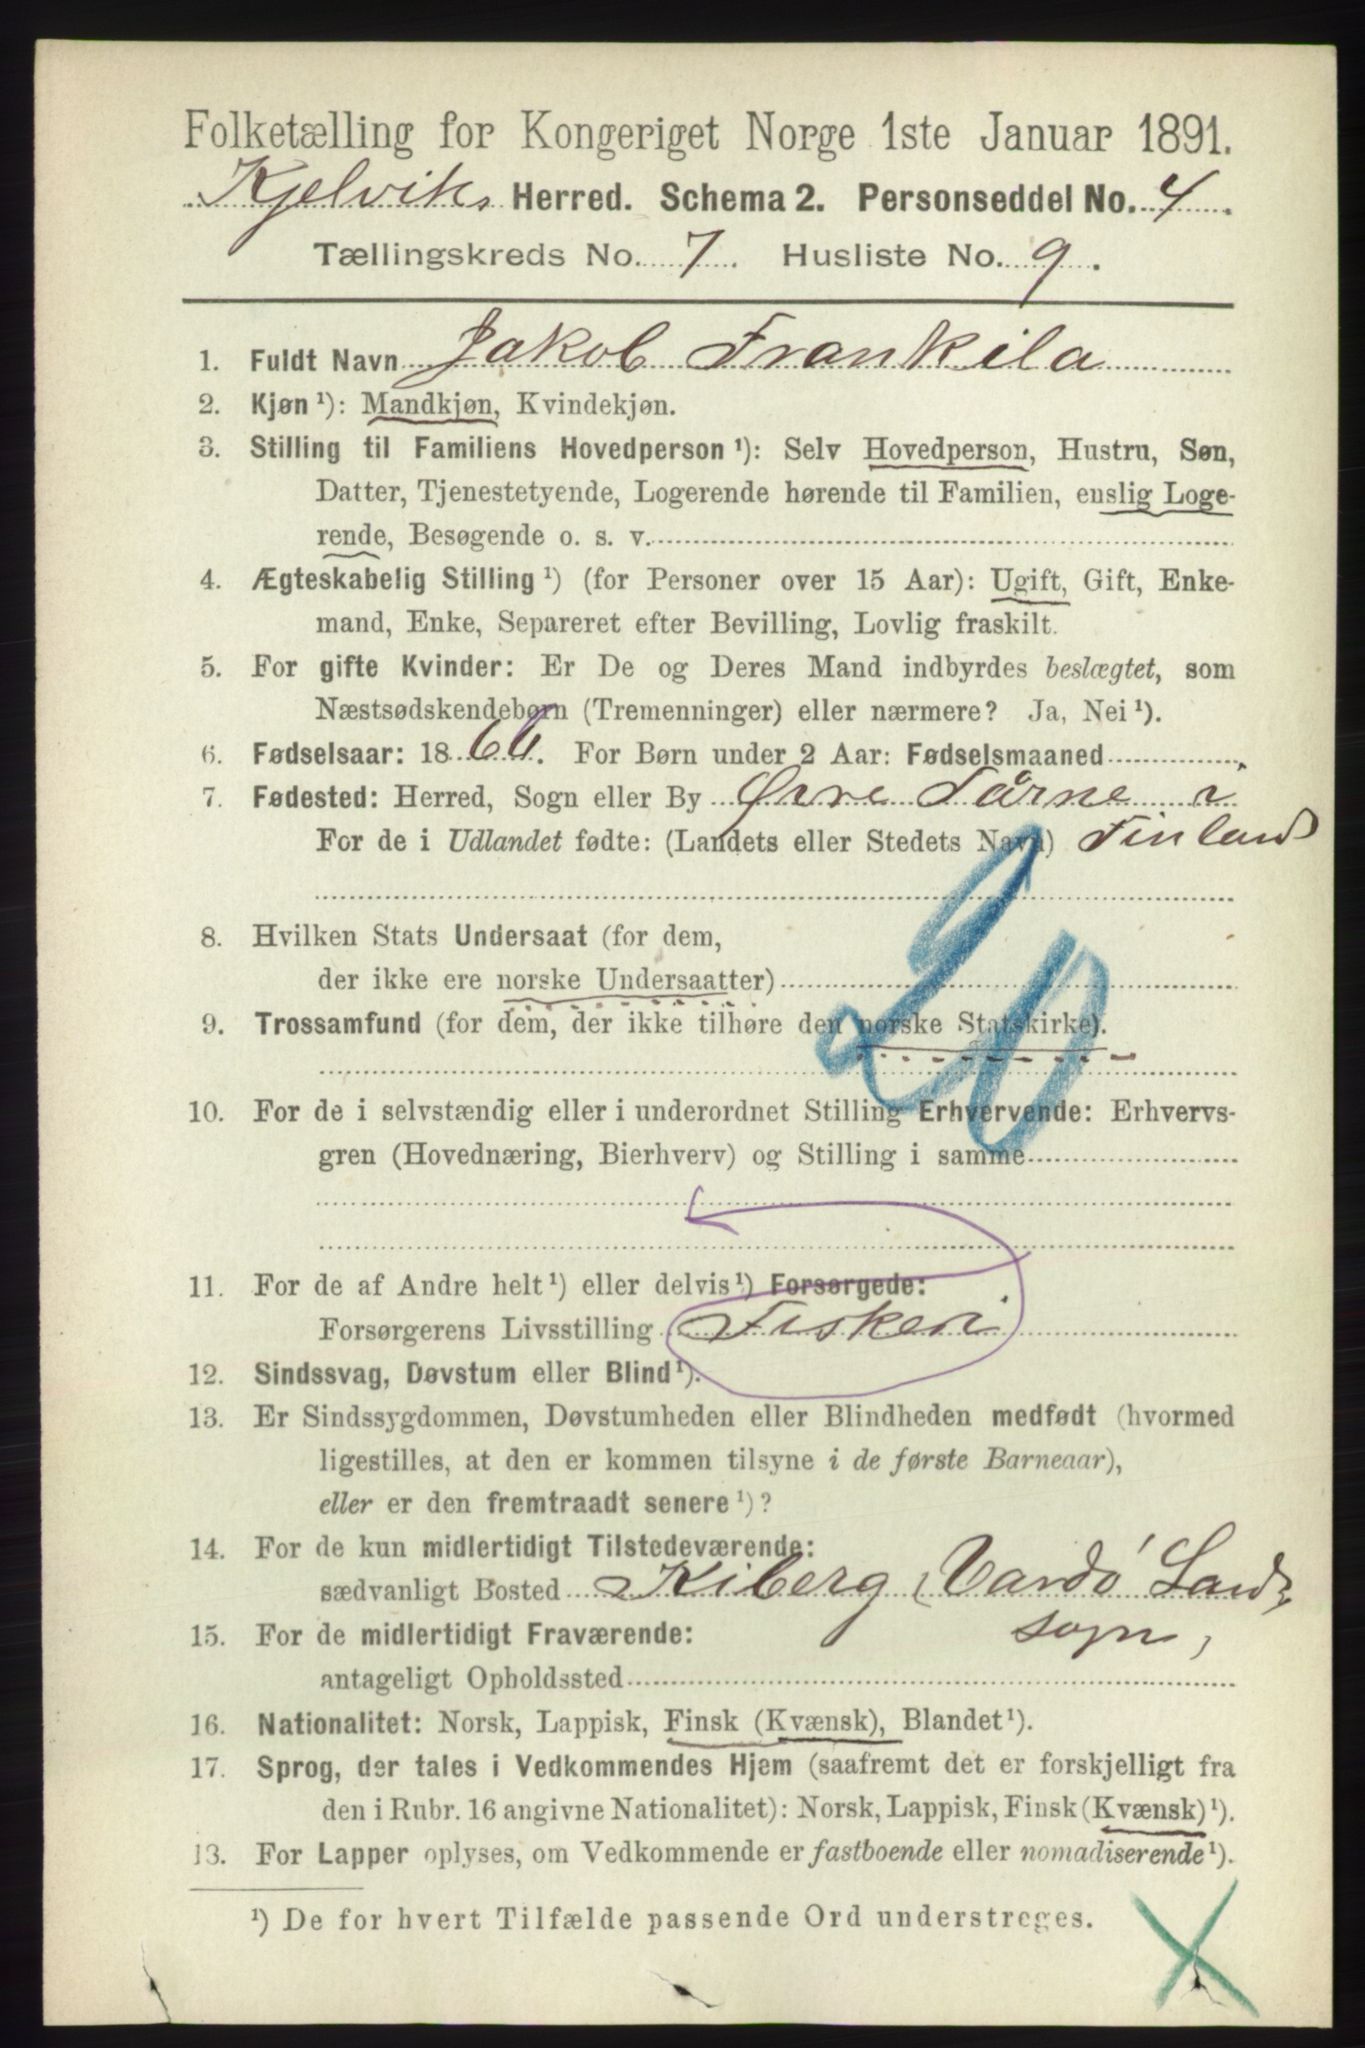 Folketælling for Kongeriget Norge 1ste Januar 1891.
Kjelviks Herred. Schema 2. Personseddel No. 4.
Tællingskreds No. 7. Husliste No. 9.
1. Fuldt Navn Jakob Frankila
2. Kjøn ¹): Mandkjøn, Kvindekjøn.
3. Stilling til Familiens Hovedperson ¹): Selv Hovedperson, Hustru, Søn,
Datter, Tjenestetyende, Logerende hørende til Familien, enslig Loge-
rende, Besøgende o. s. v.
4. Ægteskabelig Stilling ¹) (for Personer over 15 Aar): Ugift, Gift, Enke-
mand, Enke, Separeret efter Bevilling, Lovlig fraskilt.
5. For gifte Kvinder: Er De og Deres Mand indbyrdes beslægtet, som
Næstsødskendebørn (Tremenninger) eller nærmere? Ja, Nei ¹).
6. Fødselsaar: 1866. For Børn under 2 Aar: Fødselsmaaned
7. Fødested: Herred, Sogn eller By Øvre Tårne i
For de i Udlandet fødte: (Landets eller Stedets Navn) Finland
20
8. Hvilken Stats Undersaat (for dem,
der ikke ere norske Undersaatter)
9. Trossamfund (for dem, der ikke tilhøre den norske Statskirke).
10. For de i selvstændig eller i underordnet Stilling Erhvervende: Erhvervs-
gren (Hovednæring, Bierhverv) og Stilling i samme
11. For de af Andre helt ¹) eller delvis ¹) Forsørgede:
Forsørgerens Livsstilling Fiskeri
12. Sindssvag, Døvstum eller Blind ¹).
13. Er Sindssygdommen, Døvstumheden eller Blindheden medfødt (hvormed
ligestilles, at den er kommen tilsyne i de første Barneaar),
eller er den fremtraadt senere ¹)?
14. For de kun midlertidigt Tilstedeværende:
sædvanligt Bosted Kiberg, Vardö Land-
sogn,
15. For de midlertidigt Fraværende:
antageligt Opholdssted
16. Nationalitet: Norsk, Lappisk, Finsk (Kvænsk), Blandet ¹).
17. Sprog, der tales i Vedkommendes Hjem (saafremt det er forskjelligt fra
den i Rubr. 16 angivne Nationalitet): Norsk, Lappisk, Finsk (Kvænsk) ¹).
18. For Lapper oplyses, om Vedkommende er fastboende eller nomadiserende ¹).
¹) De for hvert Tilfælde passende Ord understreges.